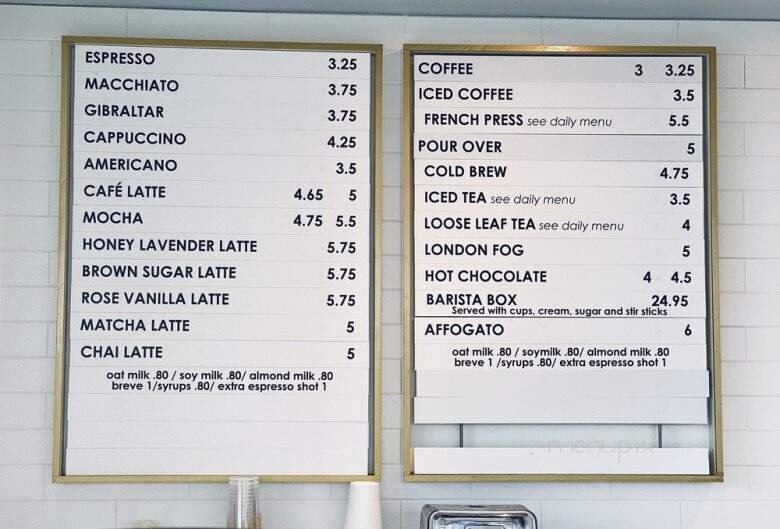 ESPRESSO 3.25
MACCHIATO 3.75
GIBRALTAR 3.75
CAPPUCCINO 4.25
AMERICANO 3.5
CAFÉ LATTE 4.65 5
MOCHA 4.75 5.5
HONEY LAVENDER LATTE 5.75
BROWN SUGAR LATTE 5.75
ROSE VANILLA LATTE 5.75
MATCHA LATTE 5
CHAI LATTE 5
oat milk .80 / soy milk .80/ almond milk .80
breve 1/syrups .80/ extra espresso shot 1
COFFEE 3 3.25
ICED COFFEE 3.5
FRENCH PRESS see daily menu 5.5
POUR OVER 5
COLD BREW 4.75
ICED TEA see daily menu 3.5
LOOSE LEAF TEA see daily menu 4
LONDON FOG 5
HOT CHOCOLATE 4 4.5
BARISTA BOX 24.95
Served with cups, cream, sugar and stir sticks
AFFOGATO 6
oat milk .80 / soymilk .80/ almond milk .80
breve 1 /syrups .80/ extra espresso shot 1
menupix